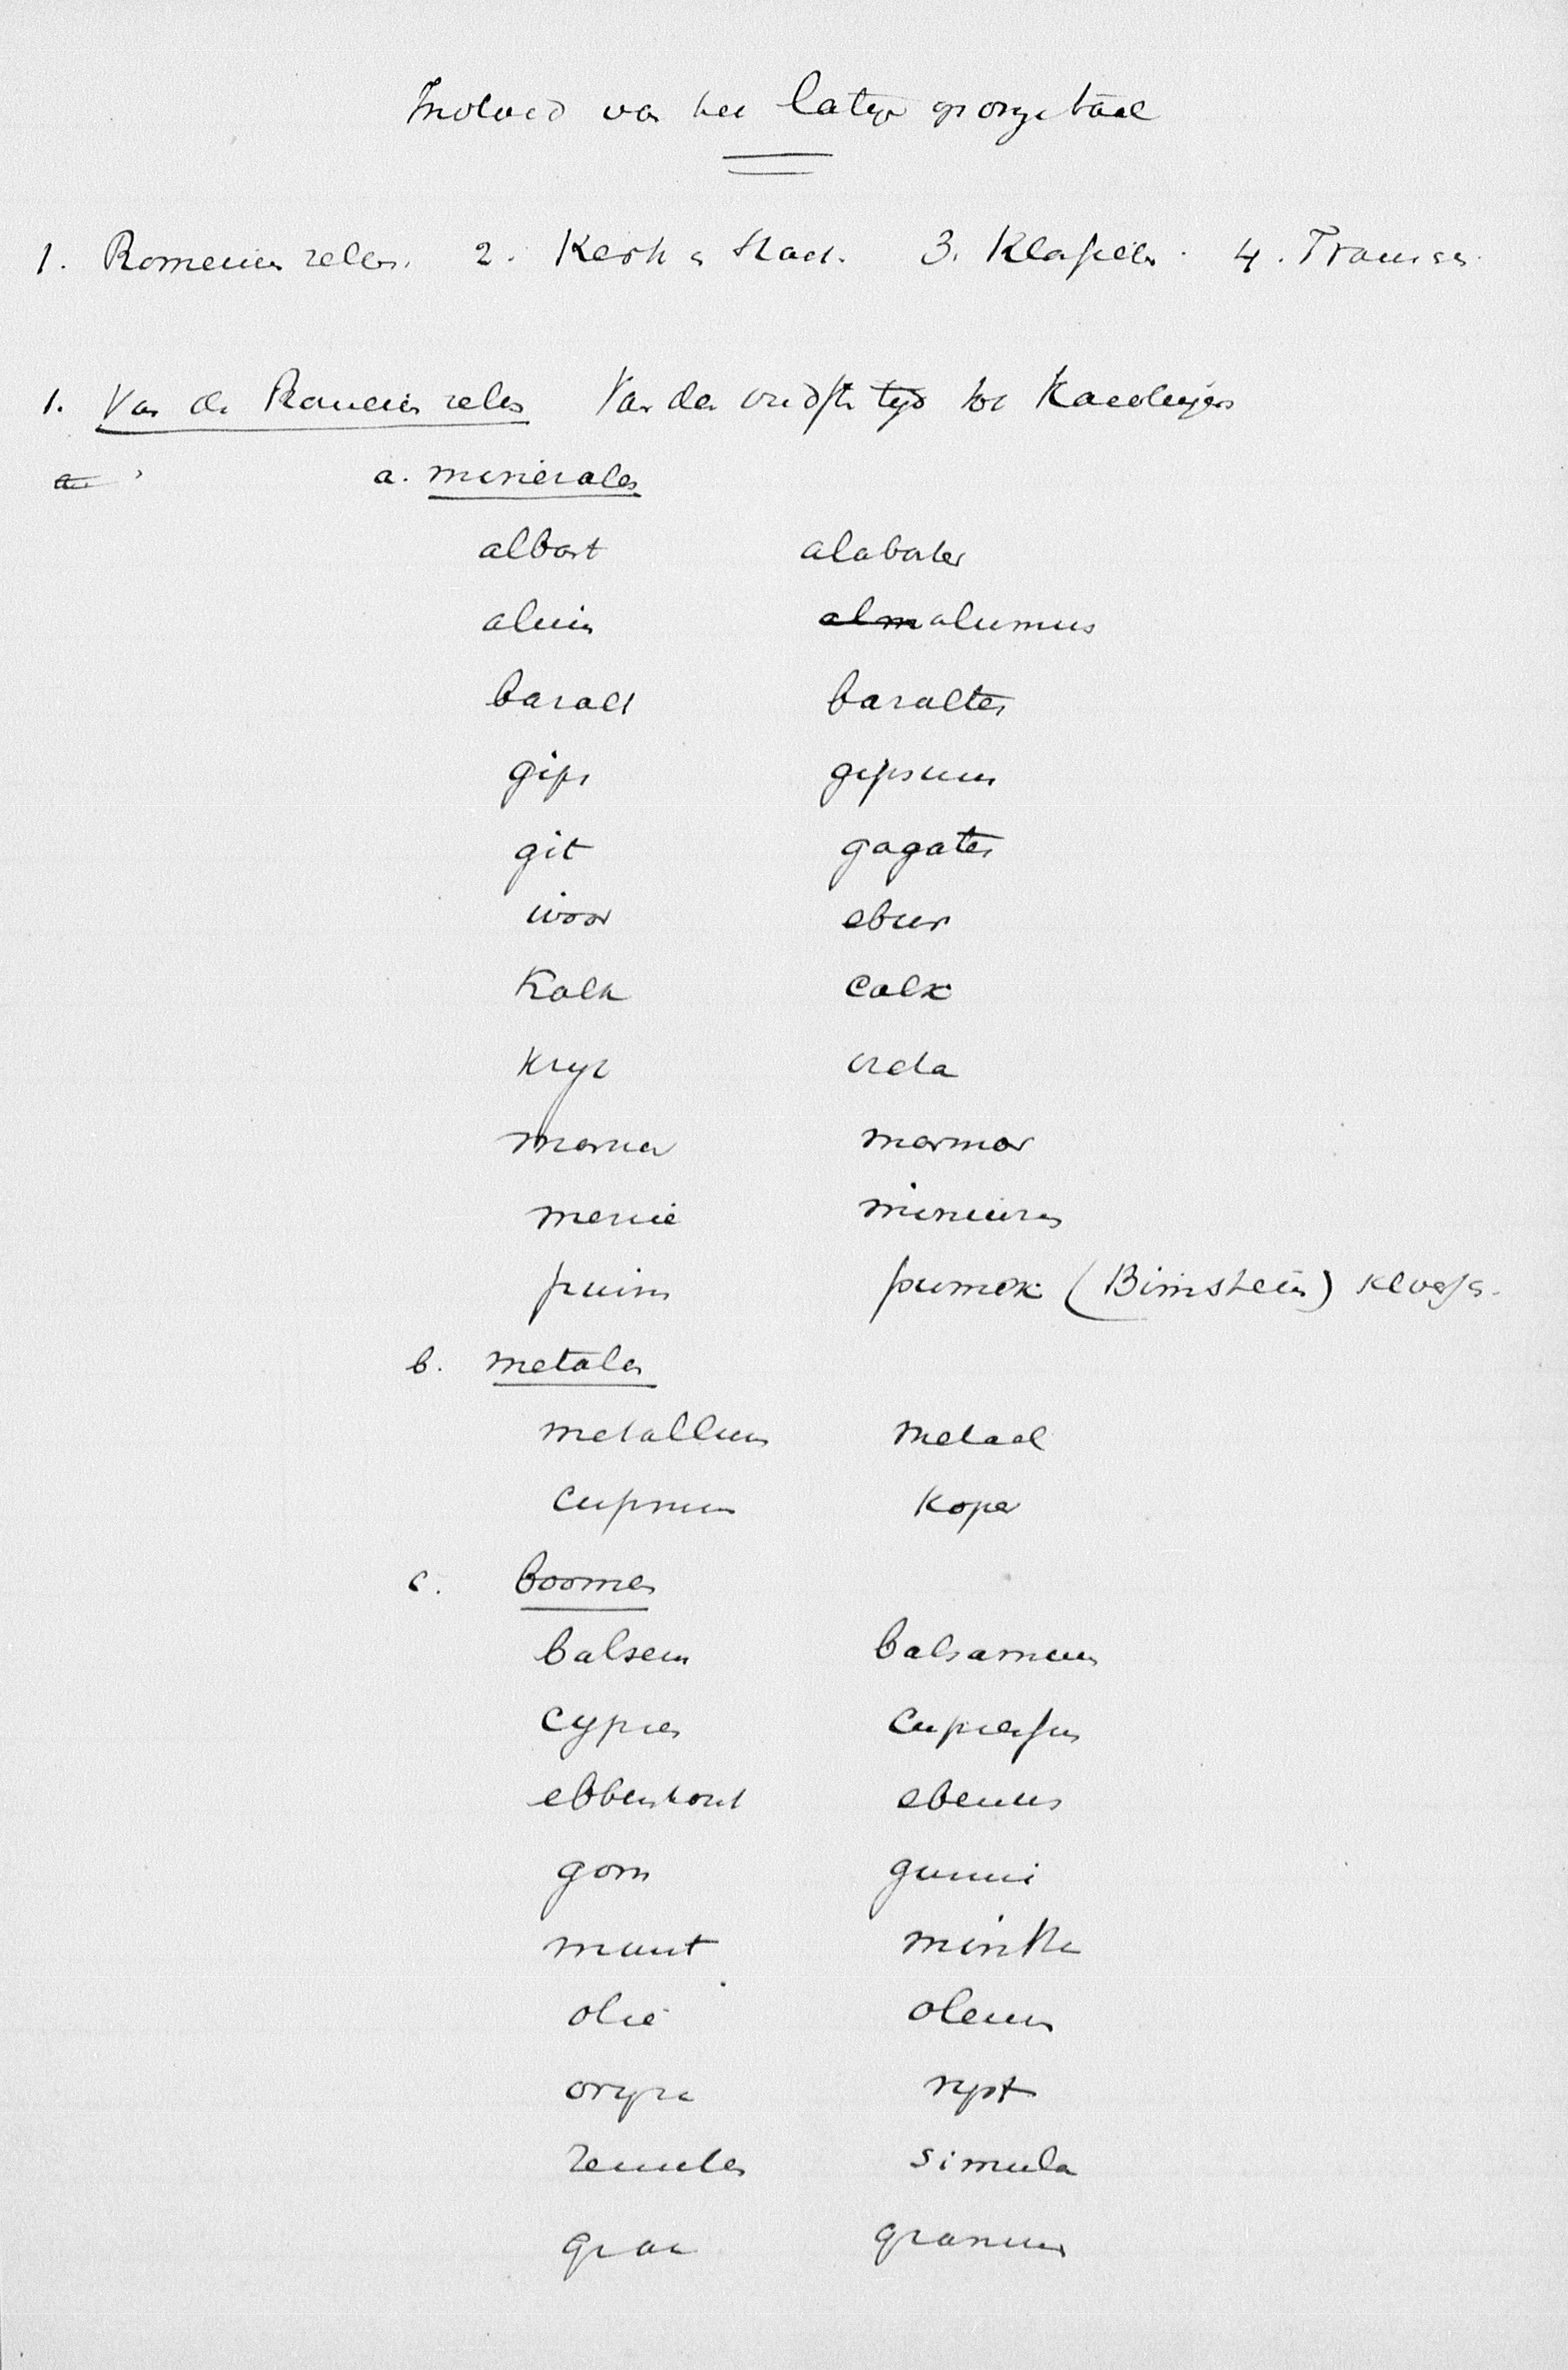 Invloed van het Latijn op onze taal
1. Romeinen zelven. 2. Kerk en Staat. 3. Klassieken. 4. Franschen.
1. Van de Romeinen zelven Van den oudsten tijd tot Karolingers
a. a. mineralen
albast alabaster
aluin alm alumus
basalt basaltes
gips gipsum
git gagates
ivoor ebur
Kalk calx
Kryt creta
marmer marmor
menie minium
puim pumex (Bimstein)
b. metalen
metallum metaal
cuprum Koper
c. boomen
balsem balsamum
cypres cupressus
ebbenhout ebenus
gom gummi
munt mintha
olie oleum
oryza ryst
zemelen simula
graan granum